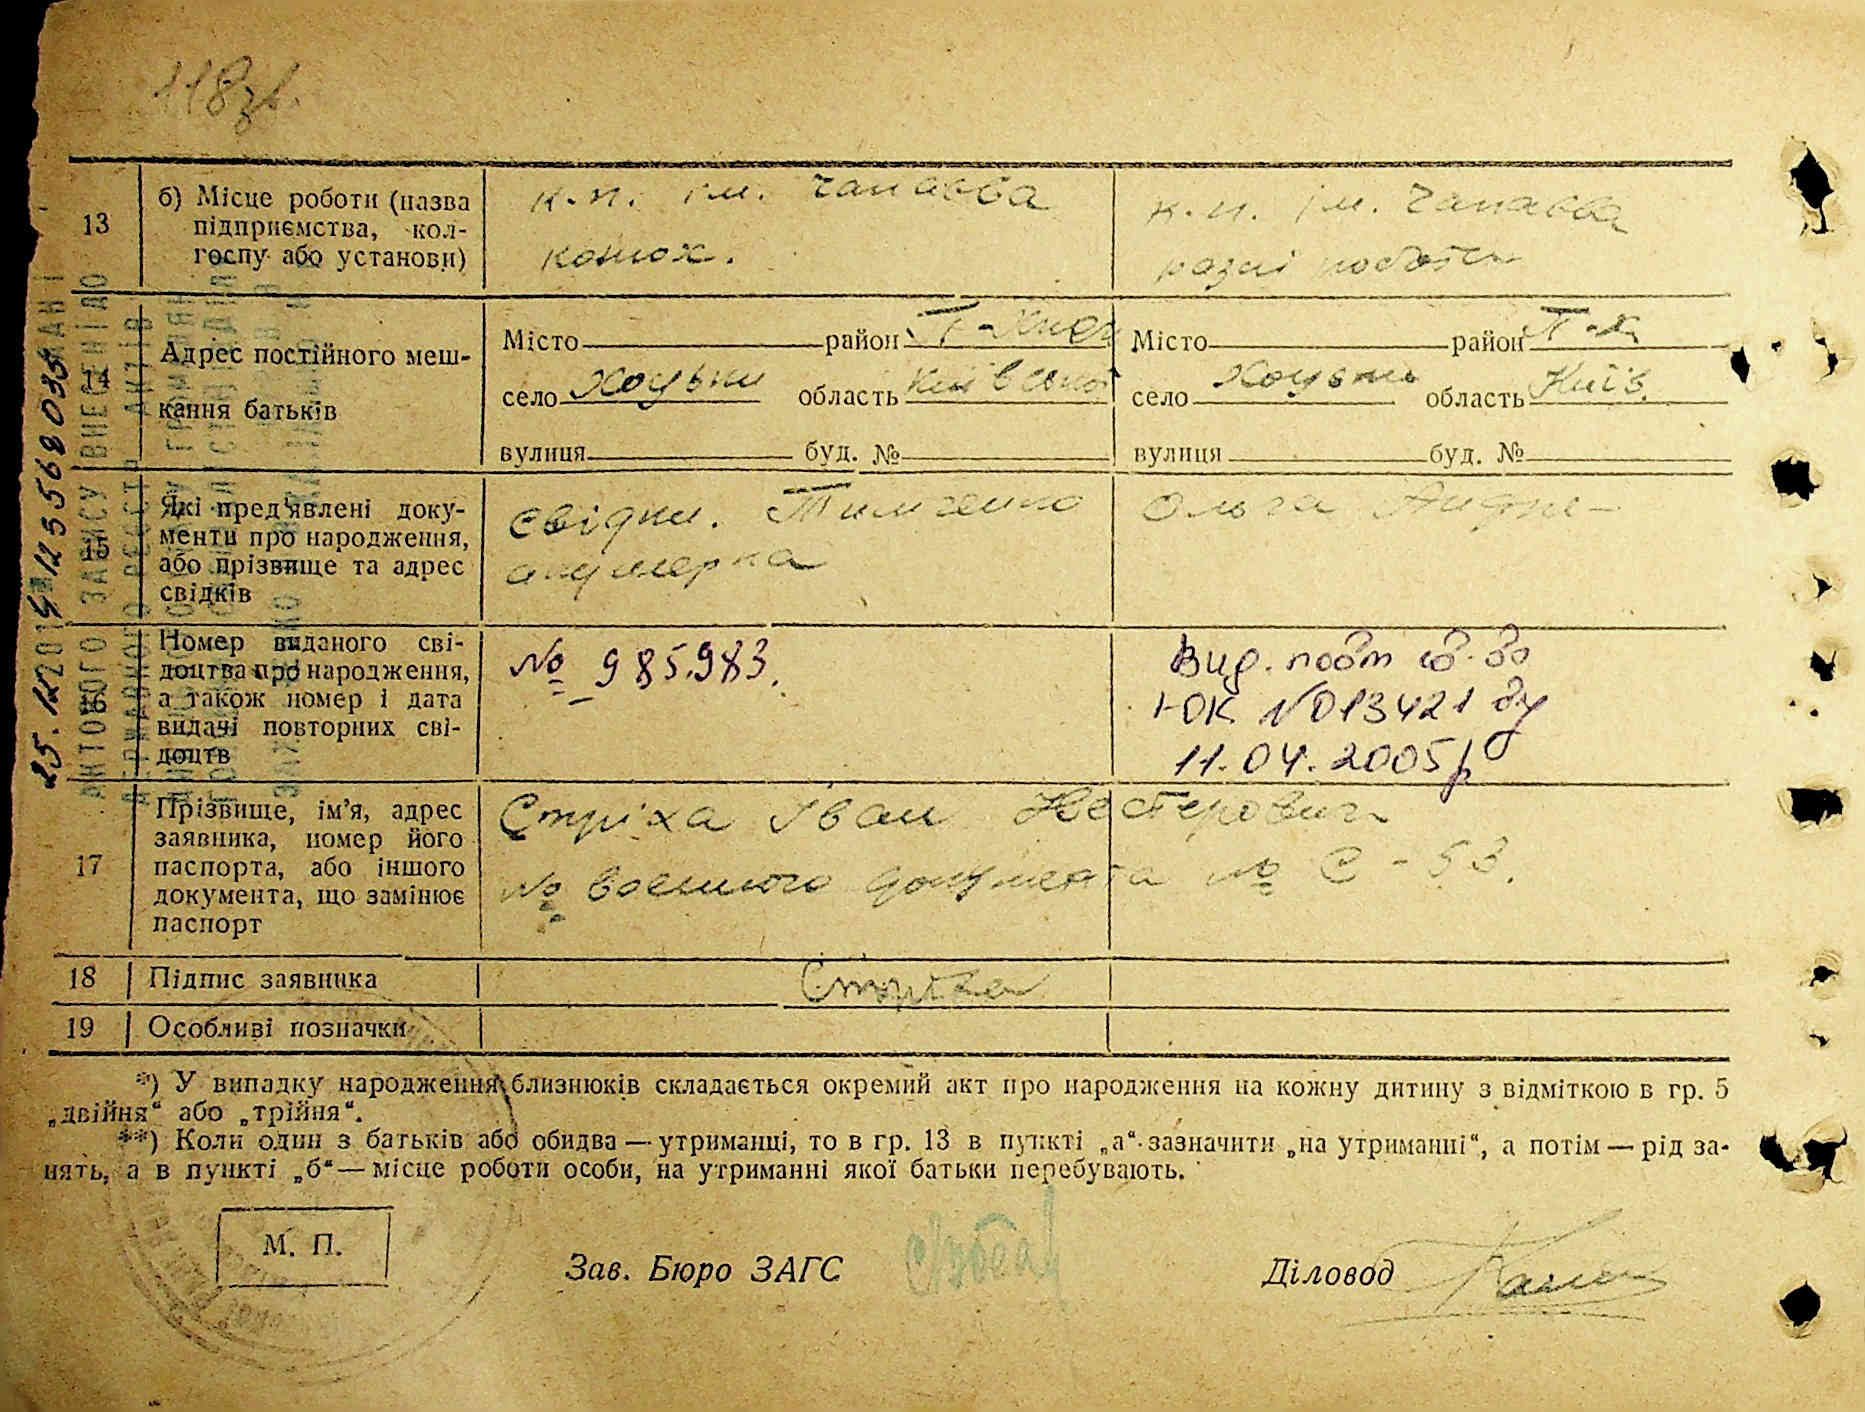 118зв.
13
б) Місце роботи (назва
підприємства, кол-
госпу або установи)
к.п. ім. Чапаєва
конюх.
к.п. ім. Чапаєва
разні роботи
14
Адрес постійного меш-
кання батьків
Місто район
село Хоцьки область Київської
вулиця буд. №
Місто район П-Х
село Хоцьки область Київ.
вулиця буд. №
15
Які пред'явлені доку-
менти про народження,
або прізвище та адрес
свідків
свідки. Тимченко Ольга Андрі-
акушерка
16
Номер виданого сві-
доцтва про народження,
а також номер і дата
видачі повторних сві-
доцтв
№ 985.983.
Вид. повт св-во
І-ОК №013421 від
11.04.2005р
17
Прізвище, ім'я, адрес
заявника, номер його
паспорта, або іншого
документа, що замінює
паспорт
Стріха Іван Нестерович
№ военного документа № С - 53.
18 Підпис заявника
Стріха
19 Особливі позначки
*) У випадку народження близнюків складається окремий акт про народження на кожну дитину з відміткою в гр. 5
„двійня“ або „трійня“.
**) Коли один з батьків або обидва — утриманці, то в гр. 13 в пункті „а“ зазначити „на утриманні“, а потім — рід за-
нять, а в пункті „б“ — місце роботи особи, на утриманні якої батьки перебувають.
М. П.
Зав. Бюро ЗАГС
Діловод
АКТОВОГО ЗАПИСУ ВНЕСЕНІ ДО